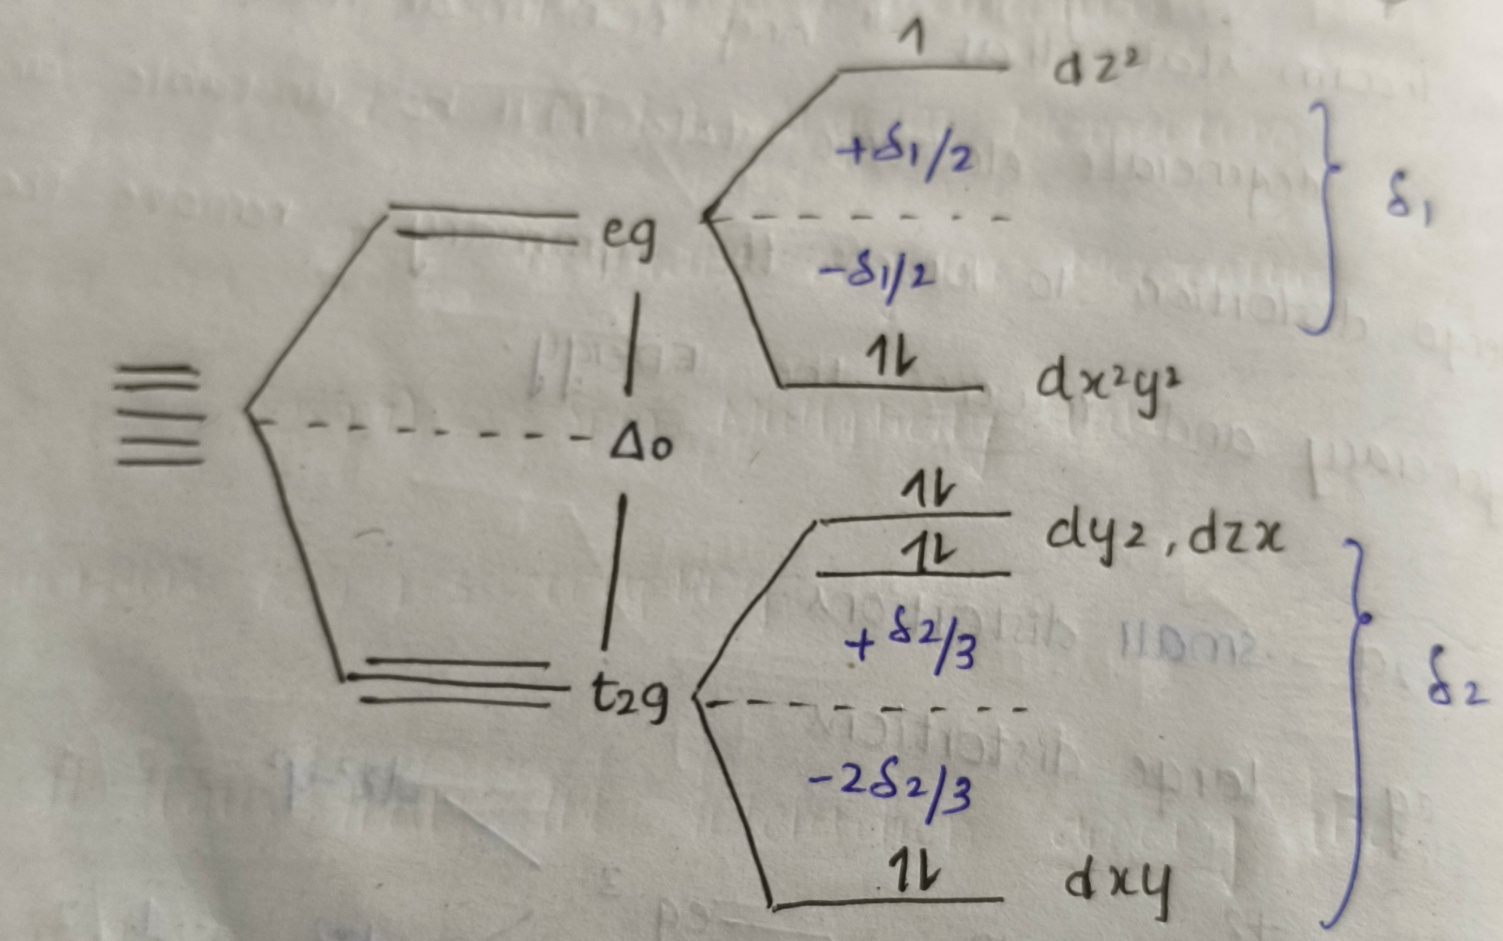 1 dz²
+δ₁/2
δ₁
eg
-δ₁/2
1L dx²y²
Δo
1L
1L dyz, dzx
+ δ2/3
δ₂
t₂g
-2δ2/3
1L dxy